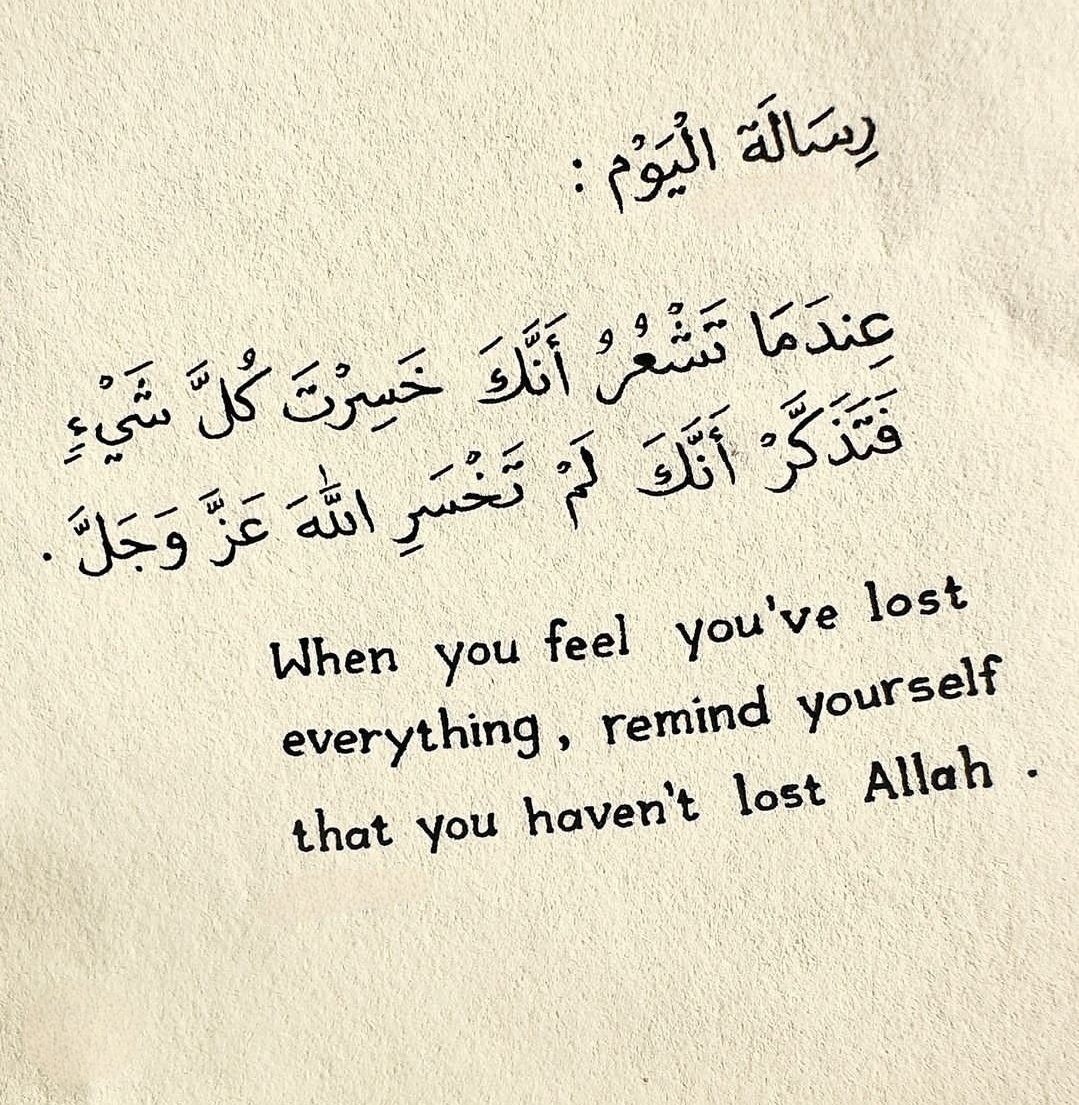 رِسَالَةَ الْيَوْم :
عِندَمَا تَشْعُرُ أَنَّكَ خَسِرْتَ كُلَّ شَيْءٍ
فَتَذَكَّرْ أَنَّكَ لَمْ تَخْسَرِ اللّٰهَ عَزَّ وَجَلَّ .
When you feel you've lost
everything, remind yourself
that you haven't lost Allah .